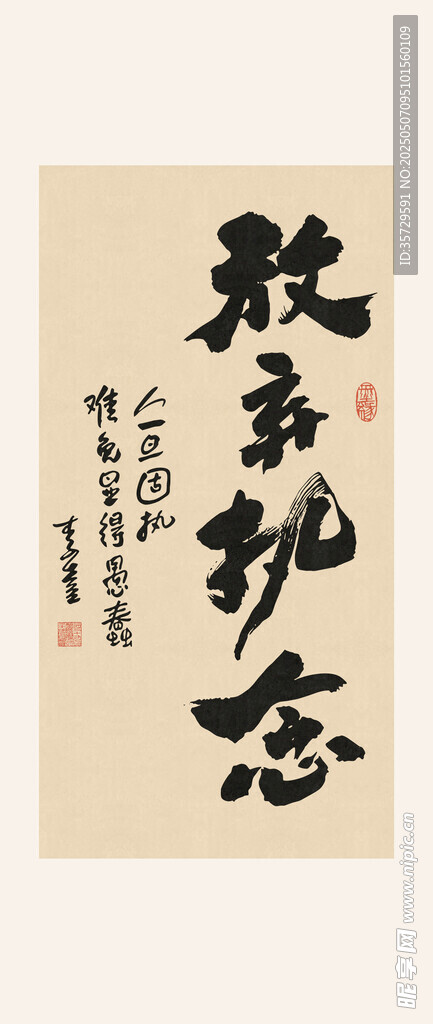 放弃执念
人一旦固执
难免显得愚蠢
ID:35729591 NO:20250507095101560109
昵享网 www.nipic.cn